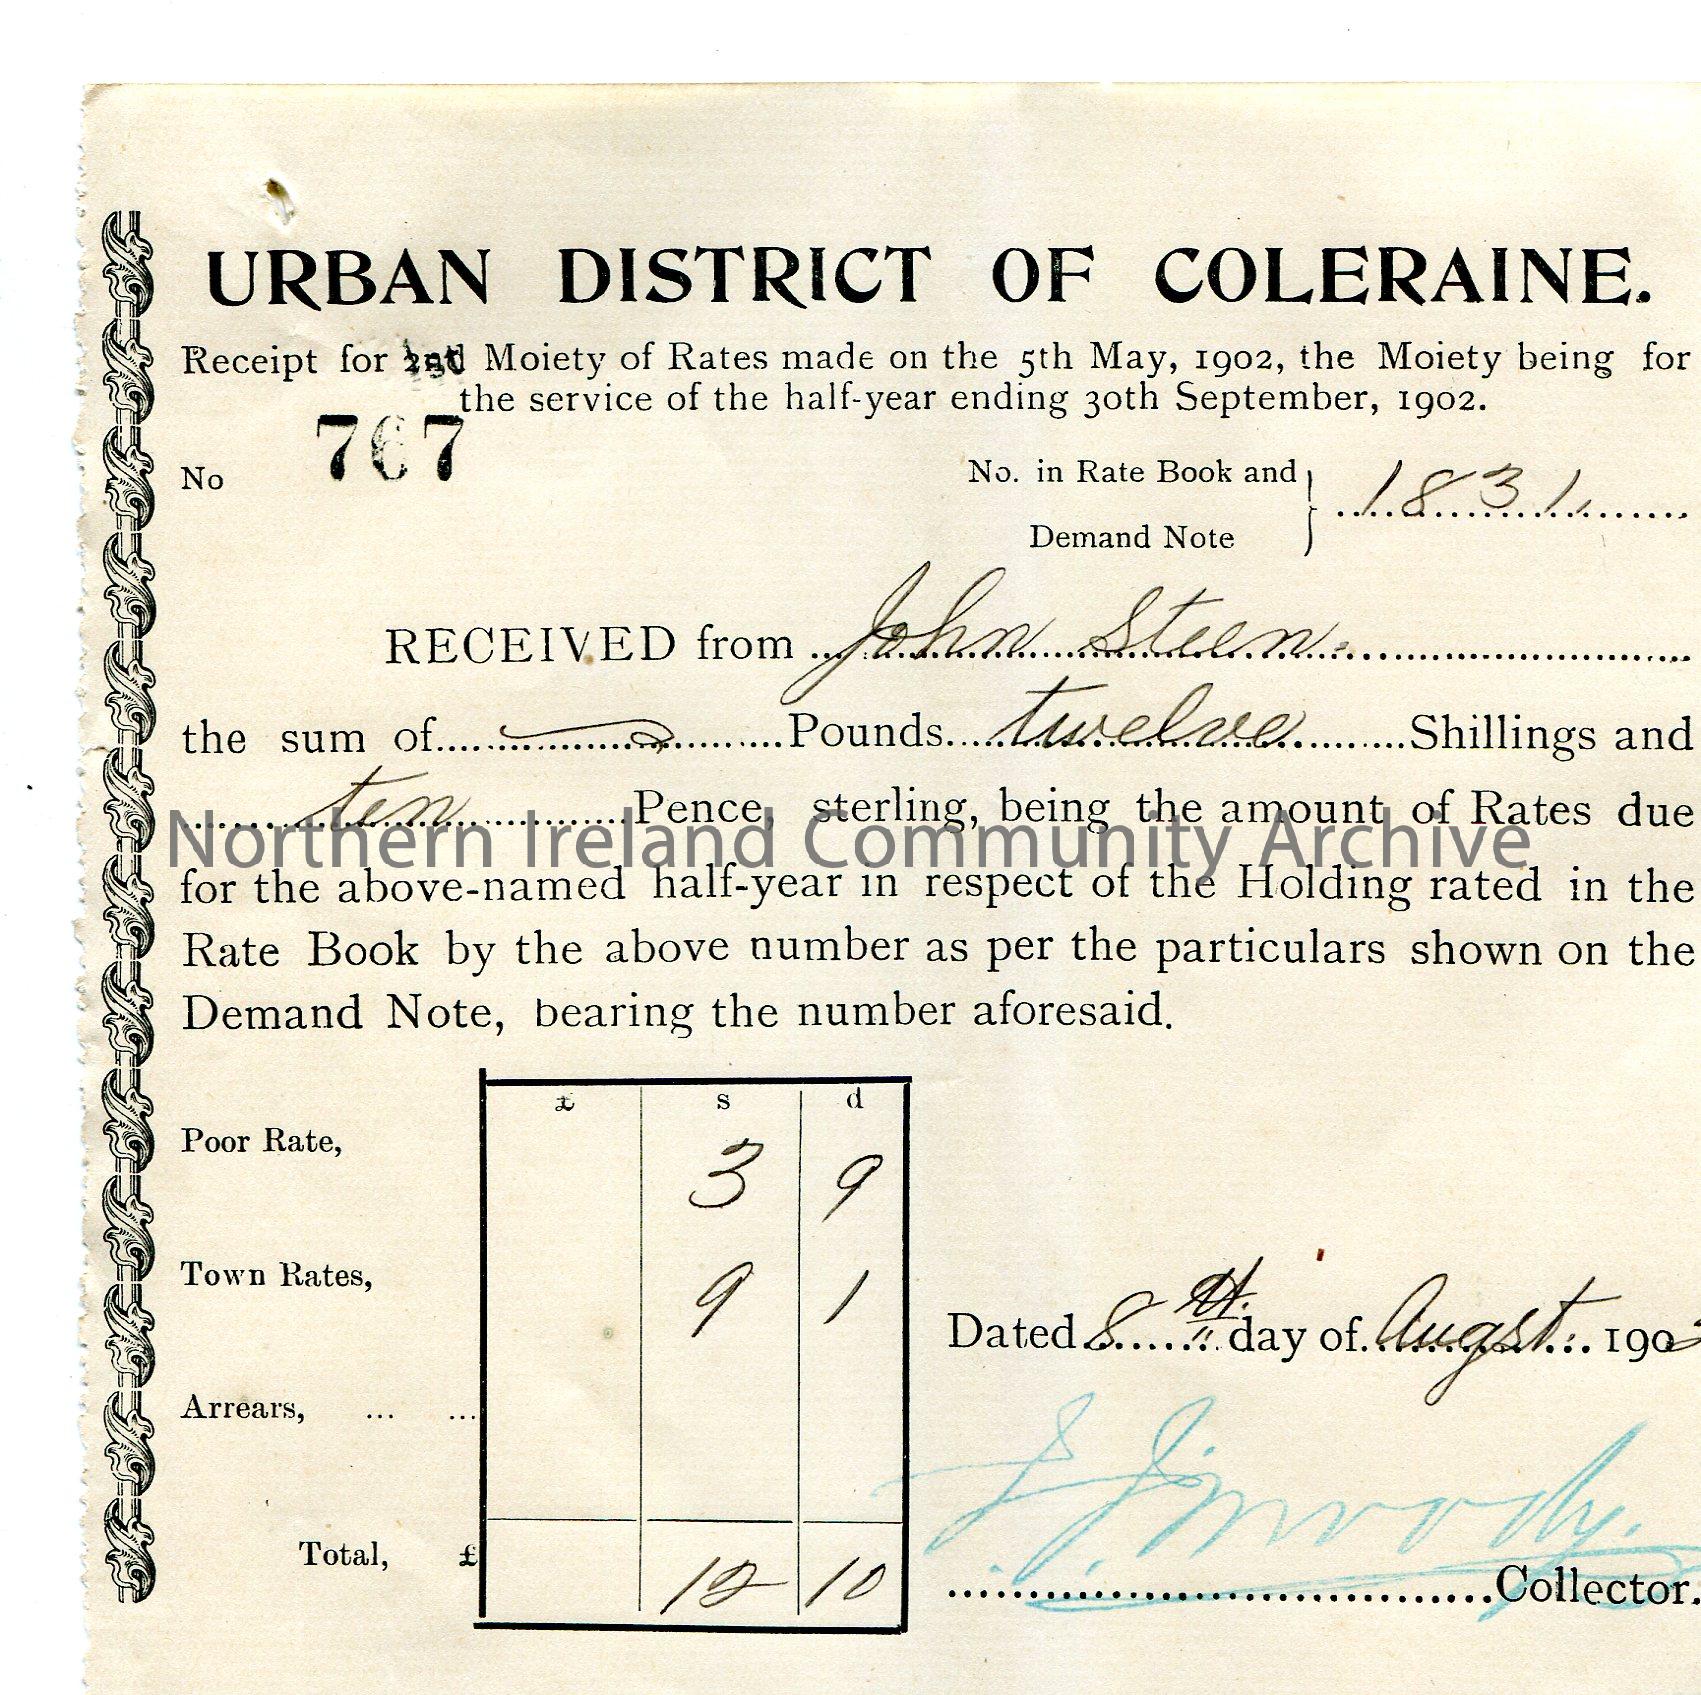 URBAN DISTRICT OF COLERAINE.
Receipt for Moiety of Rates made on the 5th May, 1902, the Moiety being for
the service of the half-year ending 30th September, 1902.
No 767
No. in Rate Book and
Demand Note } 1831
RECEIVED from John Steen
the sum of Pounds twelve Shillings and
ten Pence, sterling, being the amount of Rates due
Northern Ireland Community Archive
for the above-named half-year in respect of the Holding rated in the
Rate Book by the above number as per the particulars shown on the
Demand Note, bearing the number aforesaid.
£ s d
Poor Rate, 3 9
Town Rates, 9 1
Dated 8th day of Augst. 1902
Arrears, ... ...
Total, £ 12 10
Moody.
Collector.